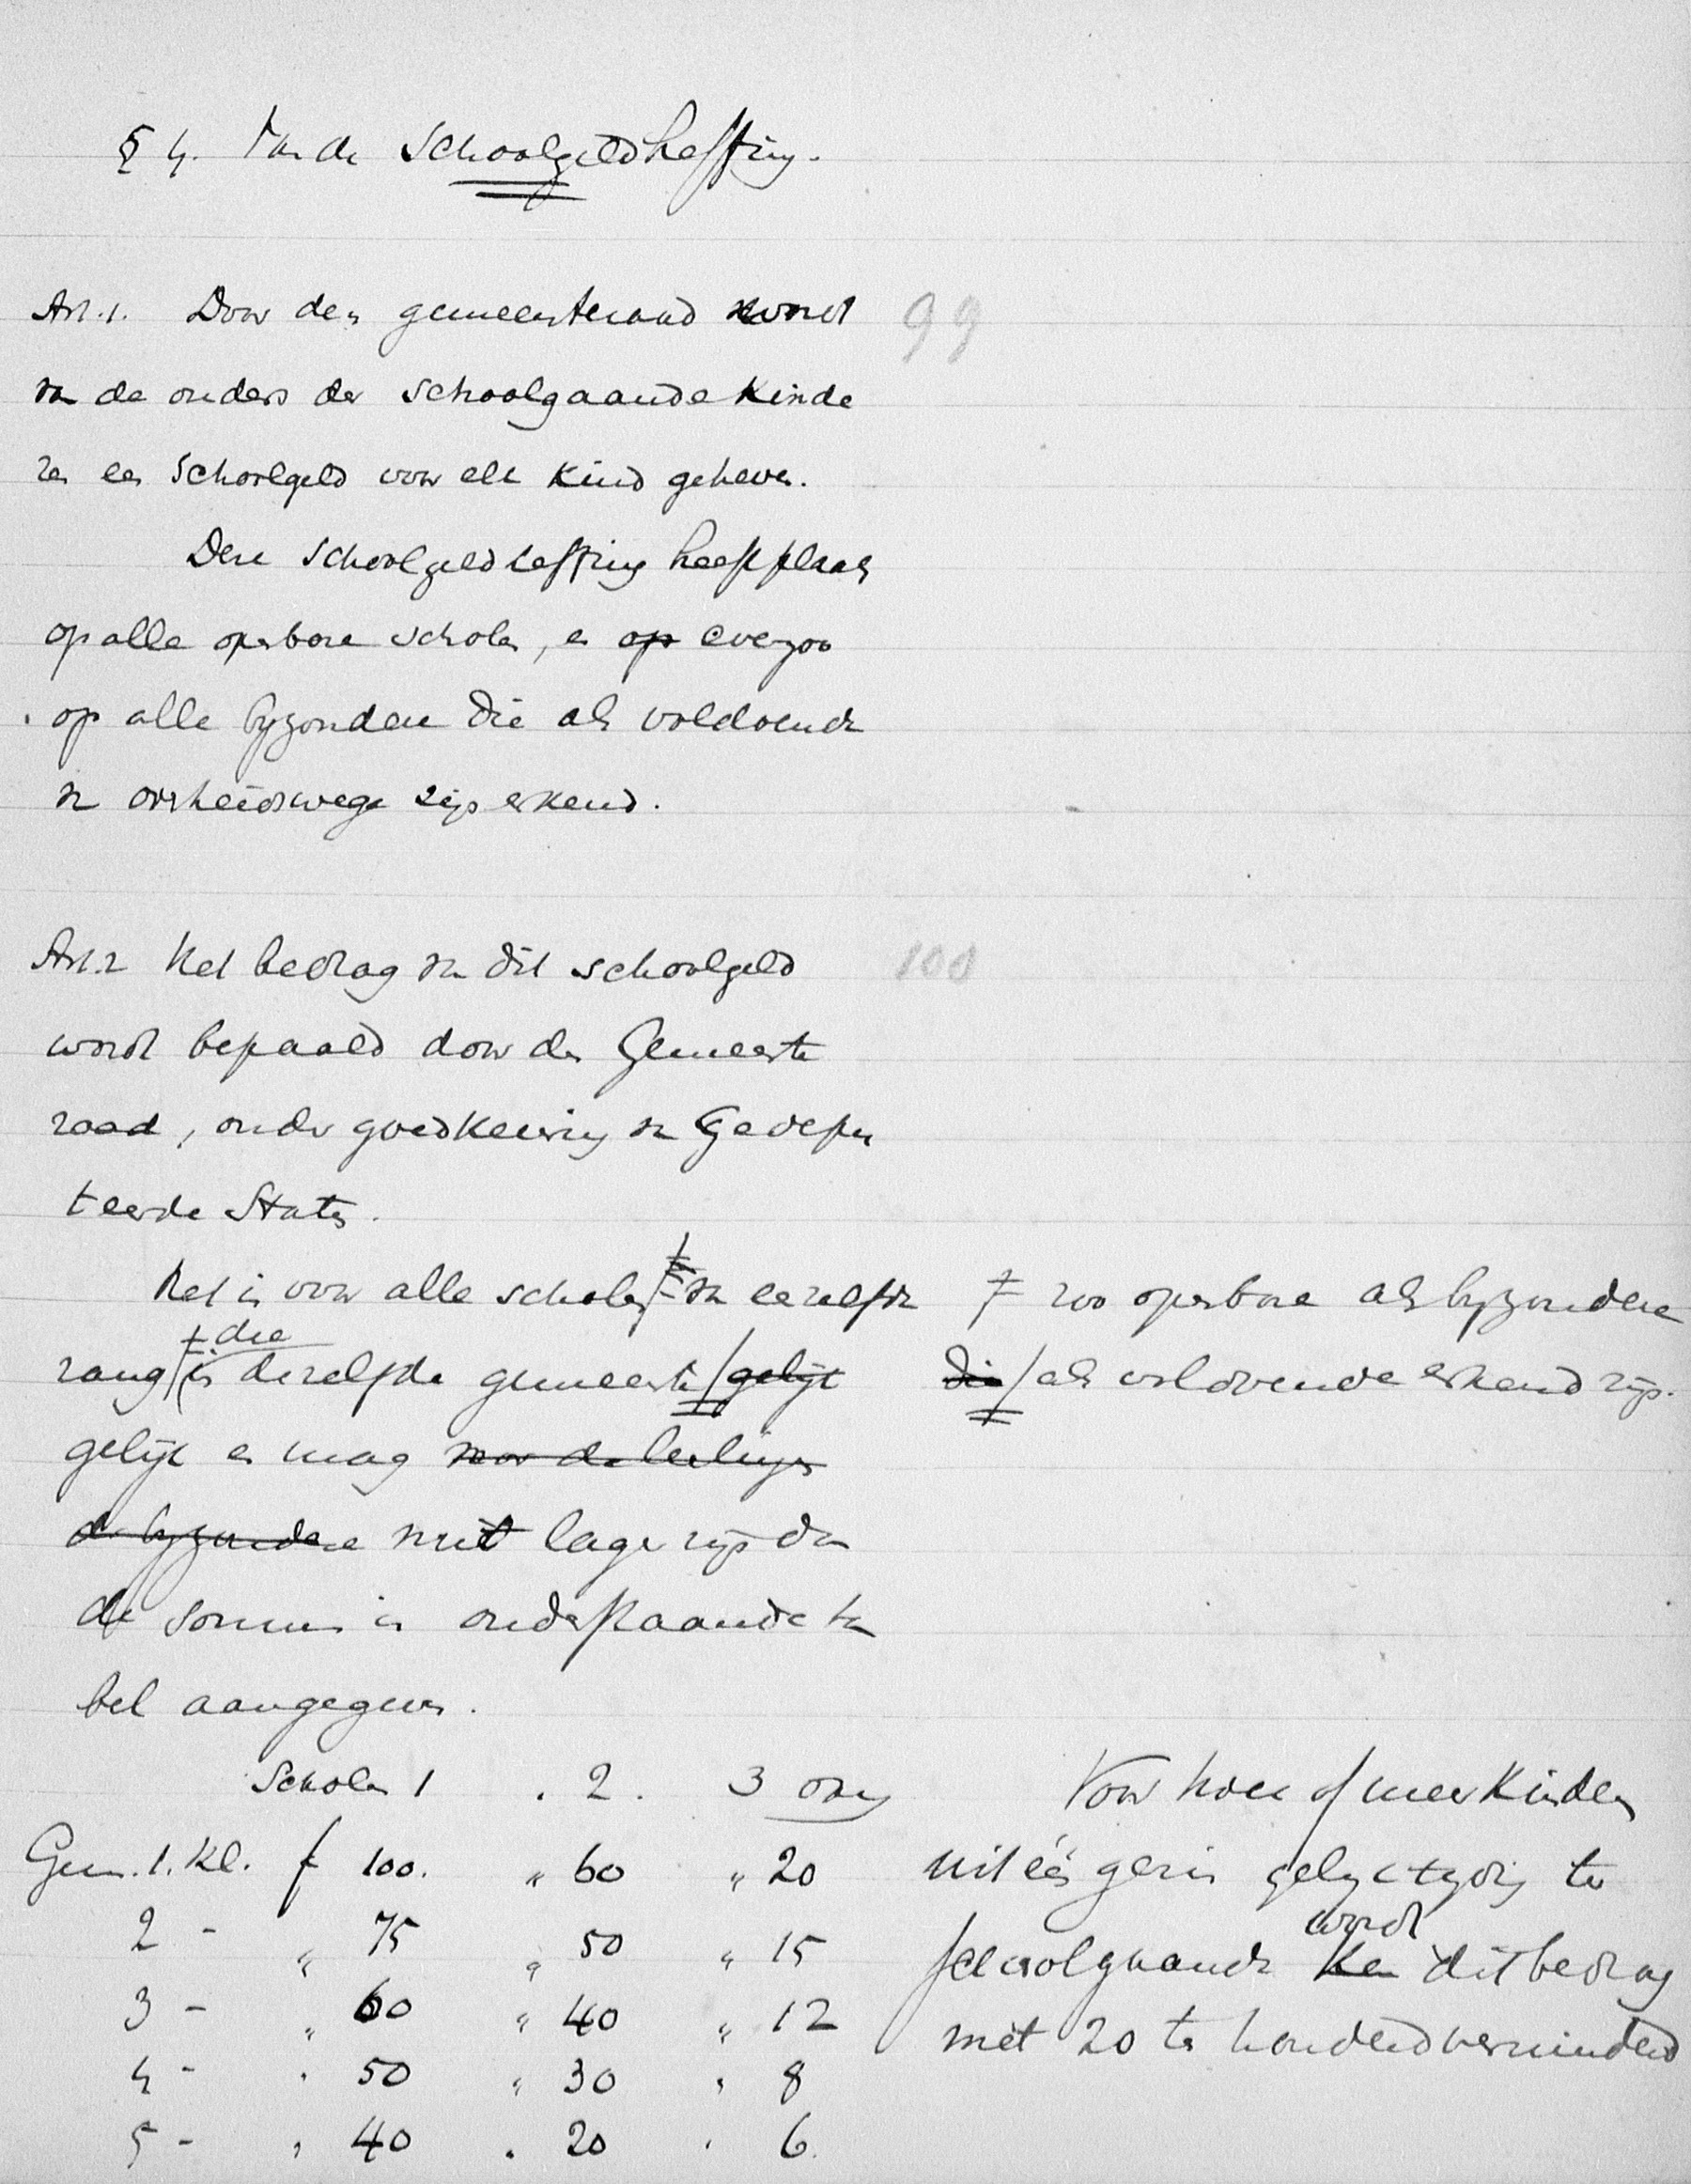 § 4. Van de Schoolgeldheffing.
Art. 1. Door den gemeenteraad wordt
99
van de ouders der schoolgaande kinde
ren een schoolgeld voor elk kind geheven.
Deze schoolgeldheffing heeft plaats
op alle openbare scholen, en op evenzoo
op alle byzondere die als voldoende
van overheidswege zijn erkend.
Art. 2 Het bedrag van dit schoolgeld
100
wordt bepaald door den Gemeente
raad, onder goedkeuring van Gedepu
teerde Staten.
Het is voor alle scholen ≠ van eenzelfde
≠ zoo openbare als byzondere
die
rang in dezelfde gemeente gelijk
die als voldoende erkend zijn.
gelijk en mag voor de leerlingen
der byzondere niet lager zijn dan
de sommen in onderstaande ta
bel aangegeven.
Scholen 1 . 2. 3 orde
Gem. 1. Kl. f 100. " 60 " 20
2 - " 75 " 50 " 15
3 - " 60 " 40 " 12
4 - " 50 " 30 " 8
5 - " 40 " 20 " 6.
Voor twee of meer kinderen
uit één gezin gelyctydig te
wordt
schoolgaande dit bedrag
met 20 ten honderd verminderd